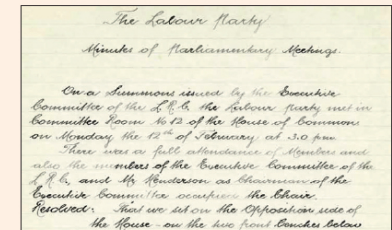 The Labour Party
Minutes of Parliamentary Meetings.
On a Summons issued by the Executive
Committee of the L.R.C. the Labour Party met in
Committee Room No 12 of the House of Commons
on Monday the 12th of February at 3.0 pm
There was a full attendance of Members and
also the members of the Executive Committee of the
L.R.C. and Mr Henderson as Chairman of the
Executive Committee occupied the Chair.
Resolved: That we sit on the Opposition side of
the House - on the two front benches below